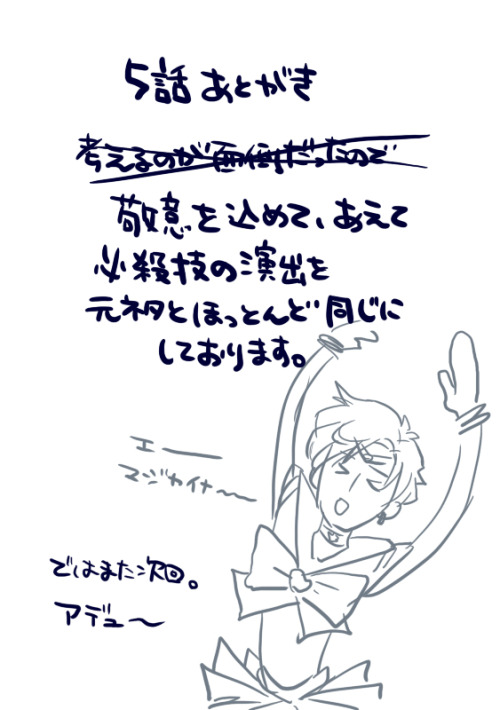 5話 あとがき
考えるのが面倒だったので
敬意を込めて、あえて
必殺技の演出を
元ネタとほっとんど同じに
しております。
エー
マジカイナ〜〜
ではまた次回。
アデュ〜